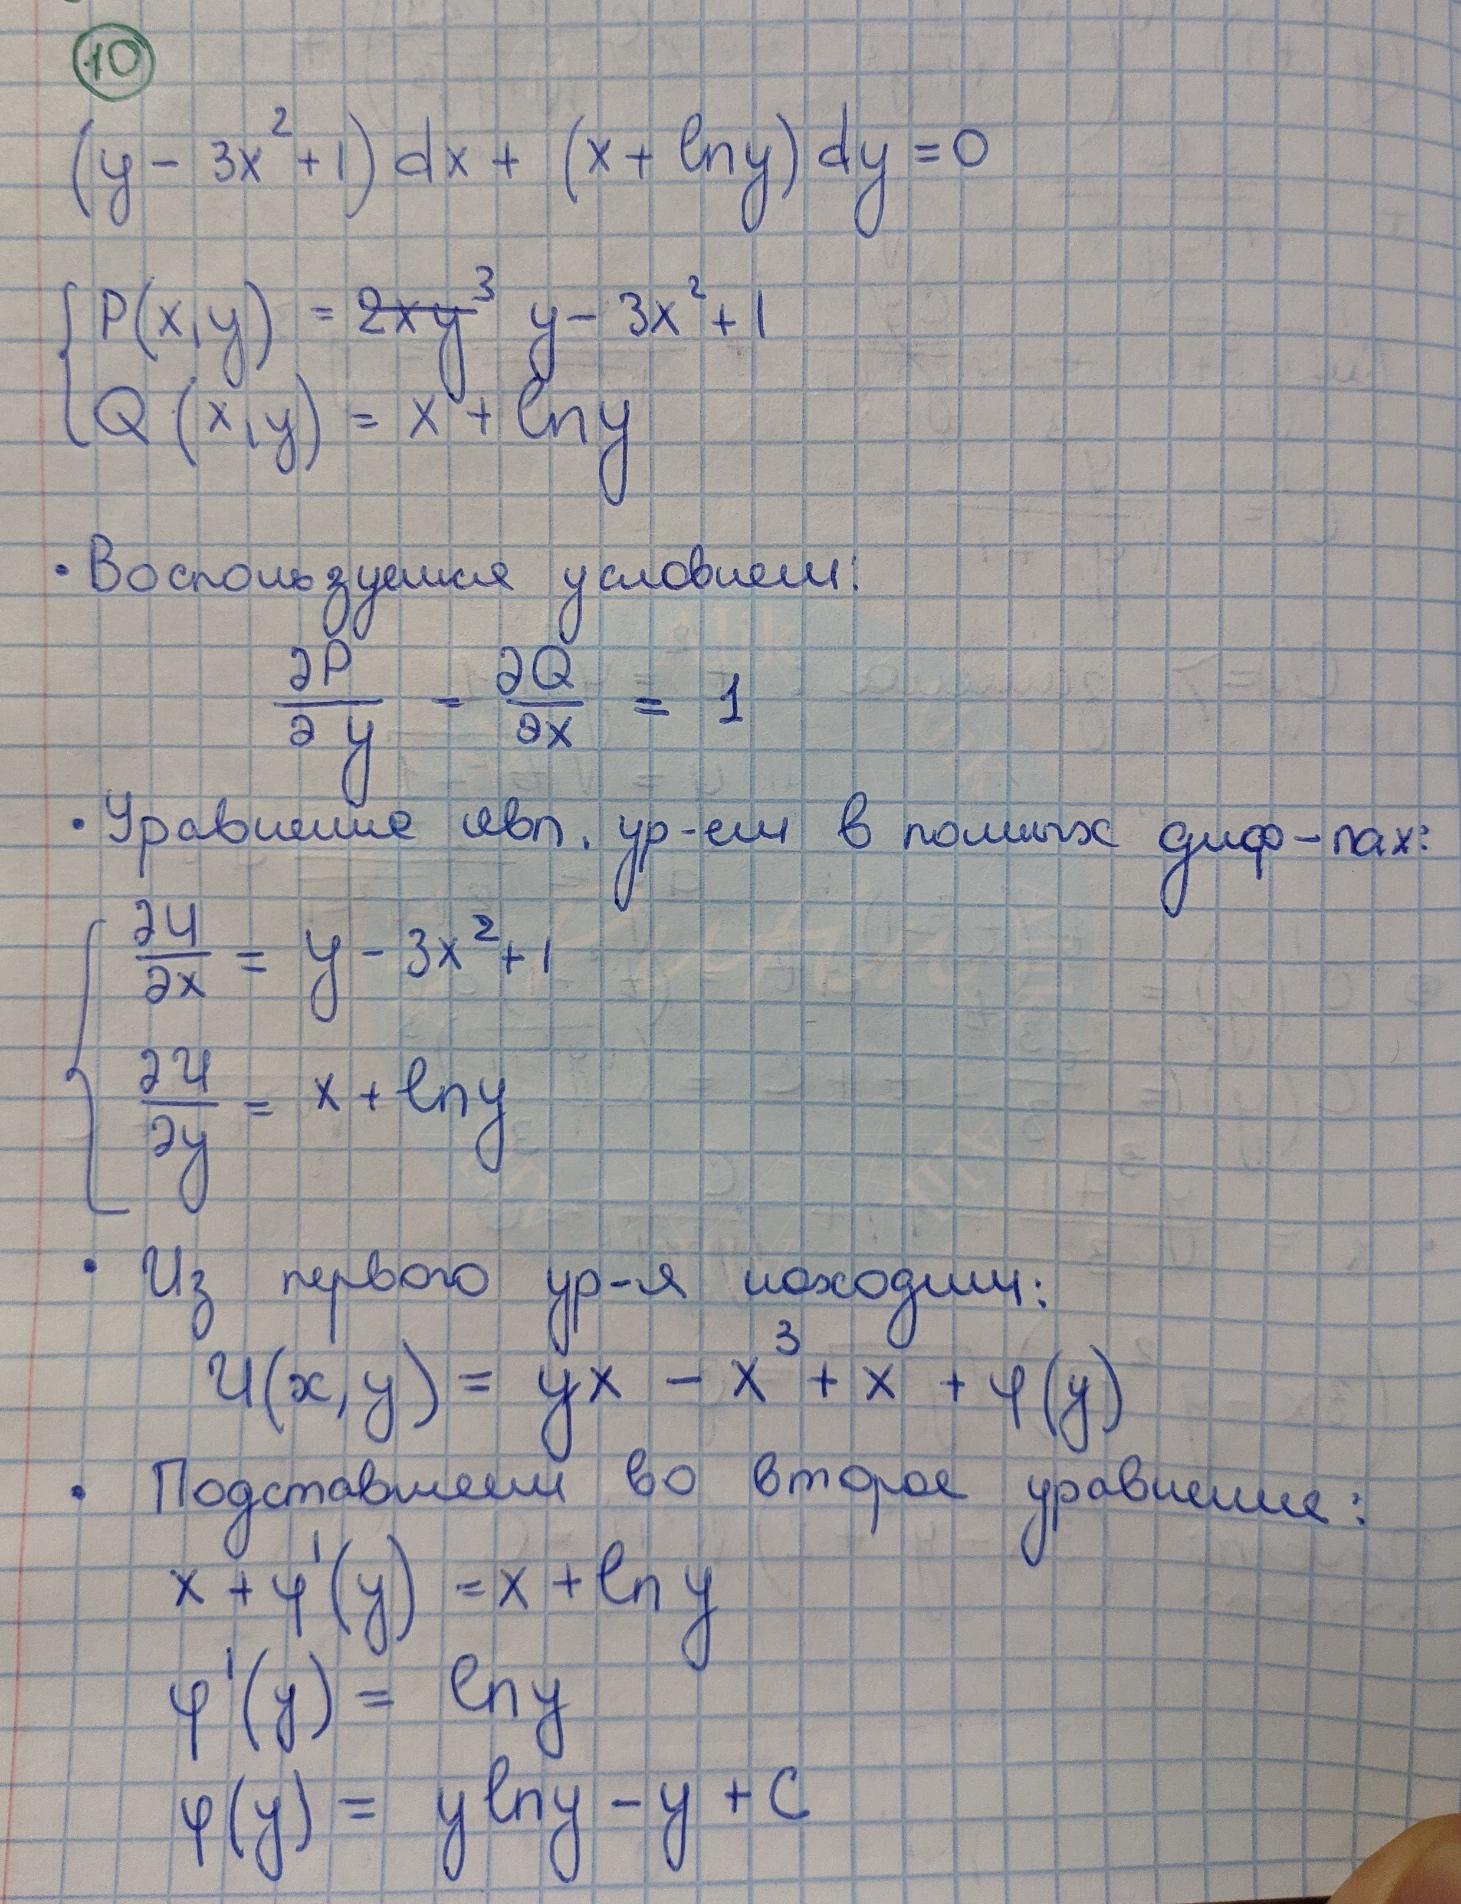 10
(y - 3x² + 1) dx + (x + ln y) dy = 0
P(x,y) = ~~2xy³~~ y - 3x² + 1
Q(x,y) = x + ln y
• Воспользуемся условием:
∂P/∂y = ∂Q/∂x = 1
• Уравнение явл. ур-ем в полных диф-лах:
∂U/∂x = y - 3x² + 1
∂U/∂y = x + ln y
• Из первого ур-я находим:
U(x,y) = yx - x³ + x + φ(y)
• Подставляем во второе уравнение:
x + φ'(y) = x + ln y
φ'(y) = ln y
φ(y) = y ln y - y + C